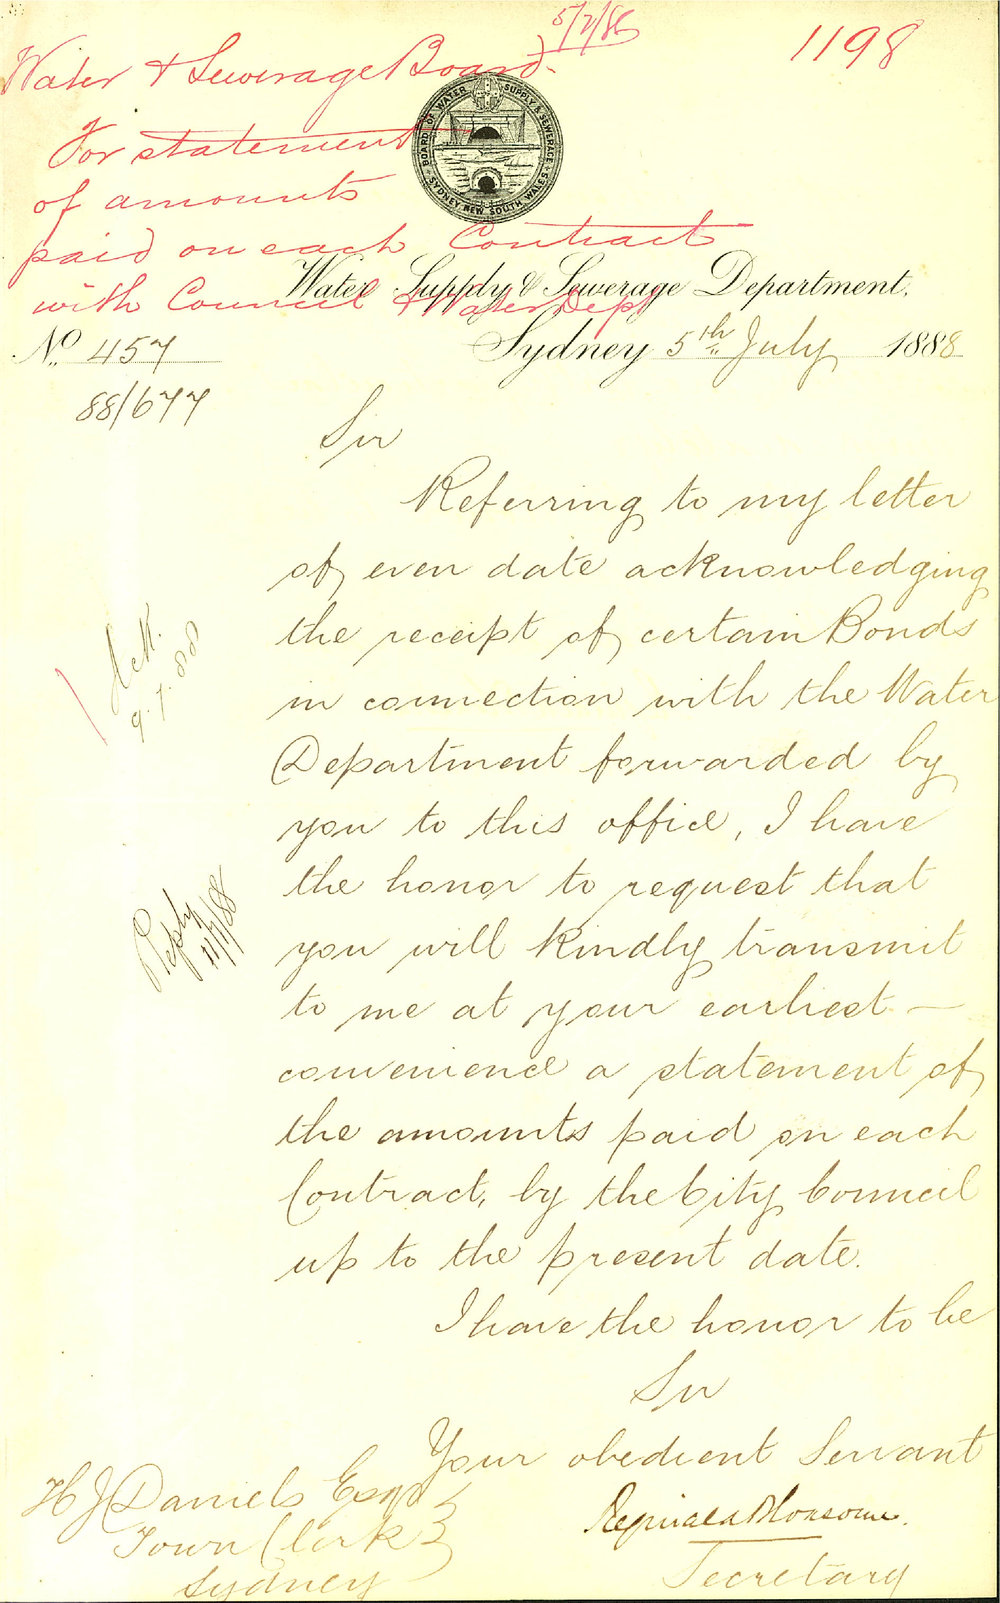 5/7/88
1198
Water & Sewerage Board.
For statement
of amounts
paid on each Contract
with Council & Water Dept
BOARD OF WATER SUPPLY & SEWERAGE
SYDNEY NEW SOUTH WALES
Water Supply & Sewerage Department.
No. 457
Sydney 5th July 1888
88/677
Sir
Referring to my letter
of even date acknowledging
the receipt of certain Bonds
in connection with the Water
Department forwarded by
you to this office, I have
the honor to request that
you will kindly transmit
to me at your earliest —
convenience a statement of
the amounts paid on each
Contract, by the City Council
up to the present date.
I have the honor to be
Sir
Your obedient Servant
Secretary
H J Daniels Esqr
Town Clerk
Sydney
Ack.
9.7.88
Reply
11/7/88